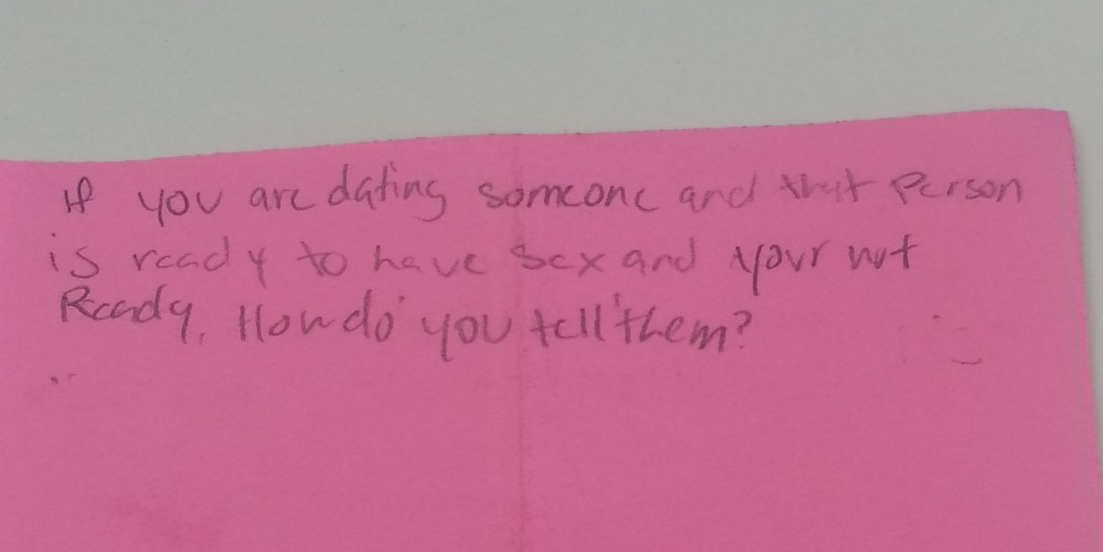 If you are dating someone and that Person
is ready to have sex and your not
Ready, How do you tell them?